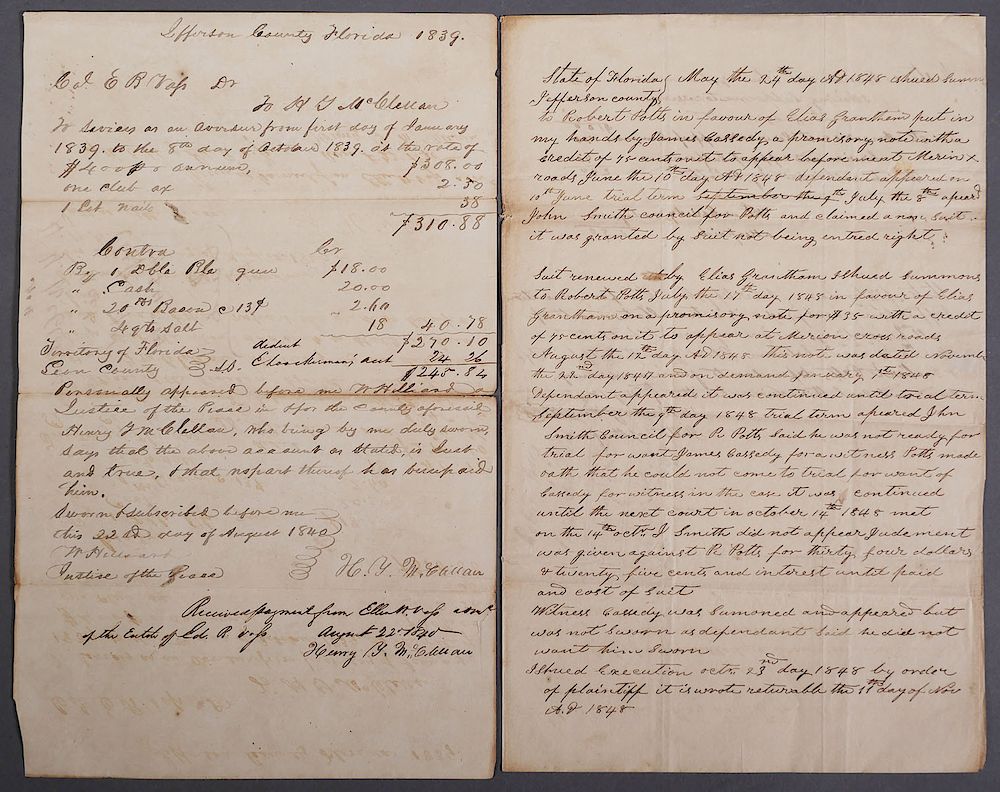 Jefferson County Florida 1839.
Col E B Vass Dr
To H Y McClellan
To Services as an Overseer from first day of January
1839. to the 8th day of October 1839 at the rate of
$400 annum, $308.00
one club ax 2.50
1 Lot Nails 38
$310.88
Contra Cr
By 1 Dbls Ble gun $18.00
" Cash 20.00
" 20 lbs Bacon c 13¢ 2.60
" 4 qts Salt 18 40.78
Territory of Florida $270.10
Leon County acct 24 26
$245.84
Personally appeared before me W Hilliard a
Justice of the Peace in & for the County aforesaid
Henry Y McClellan, who being by me duly sworn,
says that the above account as stated, is Just
and true, & that no part thereof has been paid
him.
Sworn & subscribed before me
this 22nd day of August 1840
W Hilliard
Justice of the Peace H. Y. McClellan
Received payment from
of the Estate of Ed. B. Vass August 22nd 1840
Henry Y. McClellan
State of Florida May the 24th day AD 1848 ishued Summ
Jefferson county
to Robert Potts in favour of Elias Granthem put in
my hands by James Cassedy, a promisory note with a
credit of 75 cents on it to appear before me at Merion X
roads June the 10th day AD 1848 defendant appeared on
10th June trial term September the 9th July the 8th apeard
John Smith council for Potts and claimed a non Suit
it was granted by Suit not being entred right
Suit renewed by Elias Grantham Ishued Summons
to Robert Potts July the 17th day 1848 in favour of Elias
Grantham on a promisory note for $35 with a credit
of 75 cents on it to appear at Merion cross roads
August the 12th day AD 1848 this note was dated Novemb
the 22nd day 1847 and on demand January 1st 1848
Defendant appeared it was continued until trial term
September the 9th day 1848 trial term apeared Jhn
Smith Council for R Potts Said he was not ready for
trial for want James Cassedy for a witness Potts made
oath that he could not come to trial for want of
Cassedy for witness in the case it was continued
until the next court in october 14th 1848 met
on the 14th octr. J Smith did not appear Judement
was given against R Potts for thirty four dollars
& twenty five cents and interest until paid
and cost of Suit
Witness Cassedy was Sumoned and appeared but
was not Sworn as defendant Said he did not
want him Sworn
Ishued Execution octr. 23nd day 1848 by order
of plaintiff it is wrote returnable the 11th day of Nov
A.D 1848